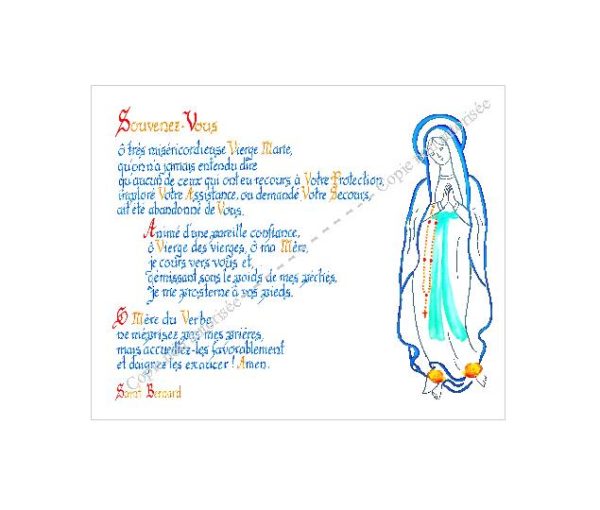 Souvenez-Vous
ô très miséricordieuse Vierge Marie,
qu'on n'a jamais entendu dire
qu'aucun de ceux qui ont eu recours à Votre Protection,
imploré Votre Assistance, ou demandé Votre Secours,
ait été abandonné de Vous.
Animé d'une pareille confiance,
ô Vierge des vierges, ô ma Mère,
je cours vers vous et,
gémissant sous le poids de mes péchés,
je me prosterne à vos pieds.
O Mère du Verbe,
ne méprisez pas mes prières,
mais accueillez-les favorablement
et daignez les exaucer ! Amen.
Saint Bernard